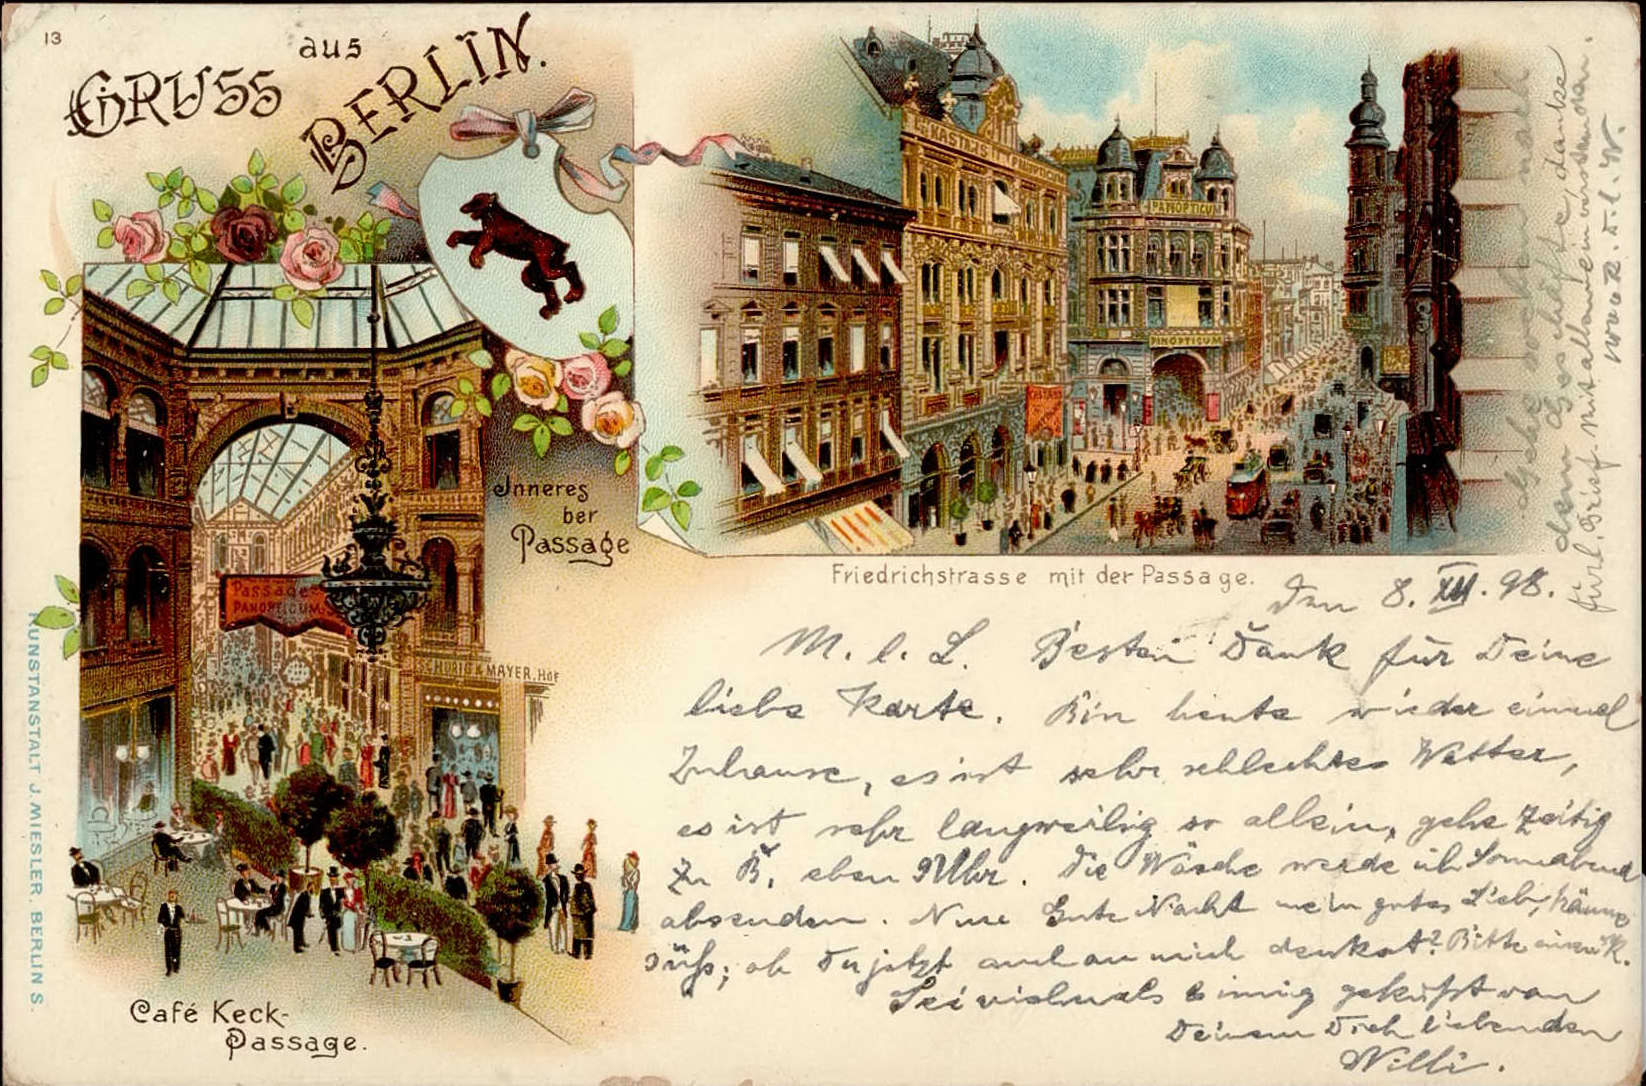 13
GRUSS aus BERLIN.
CASTAN'S PANOPTICUM
PANOPTICUM
PINOPTICUM
Inneres
der
Passage
Passage-
PANOPTICUM.
MAYER, HOF
Friedrichstrasse mit der Passage.
Café Keck-
Passage.
KUNSTANSTALT J. MIESLER. BERLIN S.
Den 8. XII. 98.
M. l. L. Besten Dank für Deine
liebe Karte. Bin heute wieder einmal
Zuhause, es ist sehr schlechtes Wetter,
es ist sehr langweilig so allein, gehe zeitig
zu B., eben 9 Uhr. Die Wäsche werde ich Sonnabend
absenden. Nun Gute Nacht mein gutes Lieb, träume
süß; ob Du jetzt auch an mich denkst? Bitte einen K.
Sei vielmals & innig geküßt von
Deinem Dich liebenden
Willi.
Gehe soeben nach
dem Geschäfte, danke
für l. Brief. Mit allem einverstanden.
W.